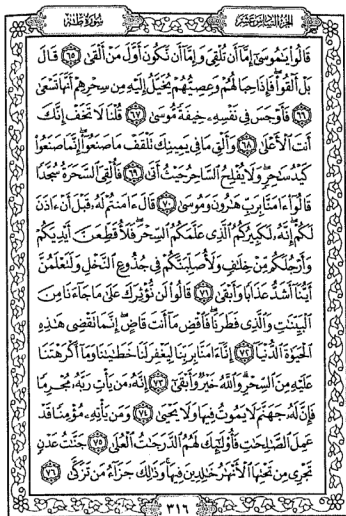 الجزء السادس عشر
سورة طه
قَالُوا يَٰمُوسَىٰٓ إِمَّآ أَن تُلْقِىَ وَإِمَّآ أَن نَّكُونَ أَوَّلَ مَنْ أَلْقَىٰ ٦٥ قَالَ
بَلْ أَلْقُوا۟ فَإِذَا حِبَالُهُمْ وَعِصِيُّهُمْ يُخَيَّلُ إِلَيْهِ مِن سِحْرِهِمْ أَنَّهَا تَسْعَىٰ
٦٦ فَأَوْجَسَ فِى نَفْسِهِۦ خِيفَةً مُّوسَىٰ ٦٧ قُلْنَا لَا تَخَفْ إِنَّكَ
أَنتَ ٱلْأَعْلَىٰ ٦٨ وَأَلْقِ مَا فِى يَمِينِكَ تَلْقَفْ مَا صَنَعُوٓا۟ إِنَّمَا صَنَعُوا۟
كَيْدُ سَٰحِرٍ وَلَا يُفْلِحُ ٱلسَّاحِرُ حَيْثُ أَتَىٰ ٦٩ فَأُلْقِىَ ٱلسَّحَرَةُ سُجَّدًا
قَالُوٓا۟ ءَامَنَّا بِرَبِّ هَٰرُونَ وَمُوسَىٰ ٧٠ قَالَ ءَامَنتُمْ لَهُۥ قَبْلَ أَنْ ءَاذَنَ
لَكُمْ إِنَّهُۥ لَكَبِيرُكُمُ ٱلَّذِى عَلَّمَكُمُ ٱلسِّحْرَ فَلَأُقَطِّعَنَّ أَيْدِيَكُمْ
وَأَرْجُلَكُم مِّنْ خِلَٰفٍ وَلَأُصَلِّبَنَّكُمْ فِى جُذُوعِ ٱلنَّخْلِ وَلَتَعْلَمُنَّ
أَيُّنَآ أَشَدُّ عَذَابًا وَأَبْقَىٰ ٧١ قَالُوا۟ لَن نُّؤْثِرَكَ عَلَىٰ مَا جَآءَنَا مِنَ
ٱلْبَيِّنَٰتِ وَٱلَّذِى فَطَرَنَا فَٱقْضِ مَآ أَنتَ قَاضٍ إِنَّمَا تَقْضِى هَٰذِهِ
ٱلْحَيَوٰةَ ٱلدُّنْيَآ ٧٢ إِنَّآ ءَامَنَّا بِرَبِّنَا لِيَغْفِرَ لَنَا خَطَٰيَٰنَا وَمَآ أَكْرَهْتَنَا
عَلَيْهِ مِنَ ٱلسِّحْرِ وَٱللَّهُ خَيْرٌ وَأَبْقَىٰٓ ٧٣ إِنَّهُۥ مَن يَأْتِ رَبَّهُۥ مُجْرِمًا
فَإِنَّ لَهُۥ جَهَنَّمَ لَا يَمُوتُ فِيهَا وَلَا يَحْيَىٰ ٧٤ وَمَن يَأْتِهِۦ مُؤْمِنًا قَدْ
عَمِلَ ٱلصَّٰلِحَٰتِ فَأُو۟لَٰٓئِكَ لَهُمُ ٱلدَّرَجَٰتُ ٱلْعُلَىٰ ٧٥ جَنَّٰتُ عَدْنٍ
تَجْرِى مِن تَحْتِهَا ٱلْأَنْهَٰرُ خَٰلِدِينَ فِيهَا وَذَٰلِكَ جَزَآءُ مَن تَزَكَّىٰ ٧٦
٣١٦